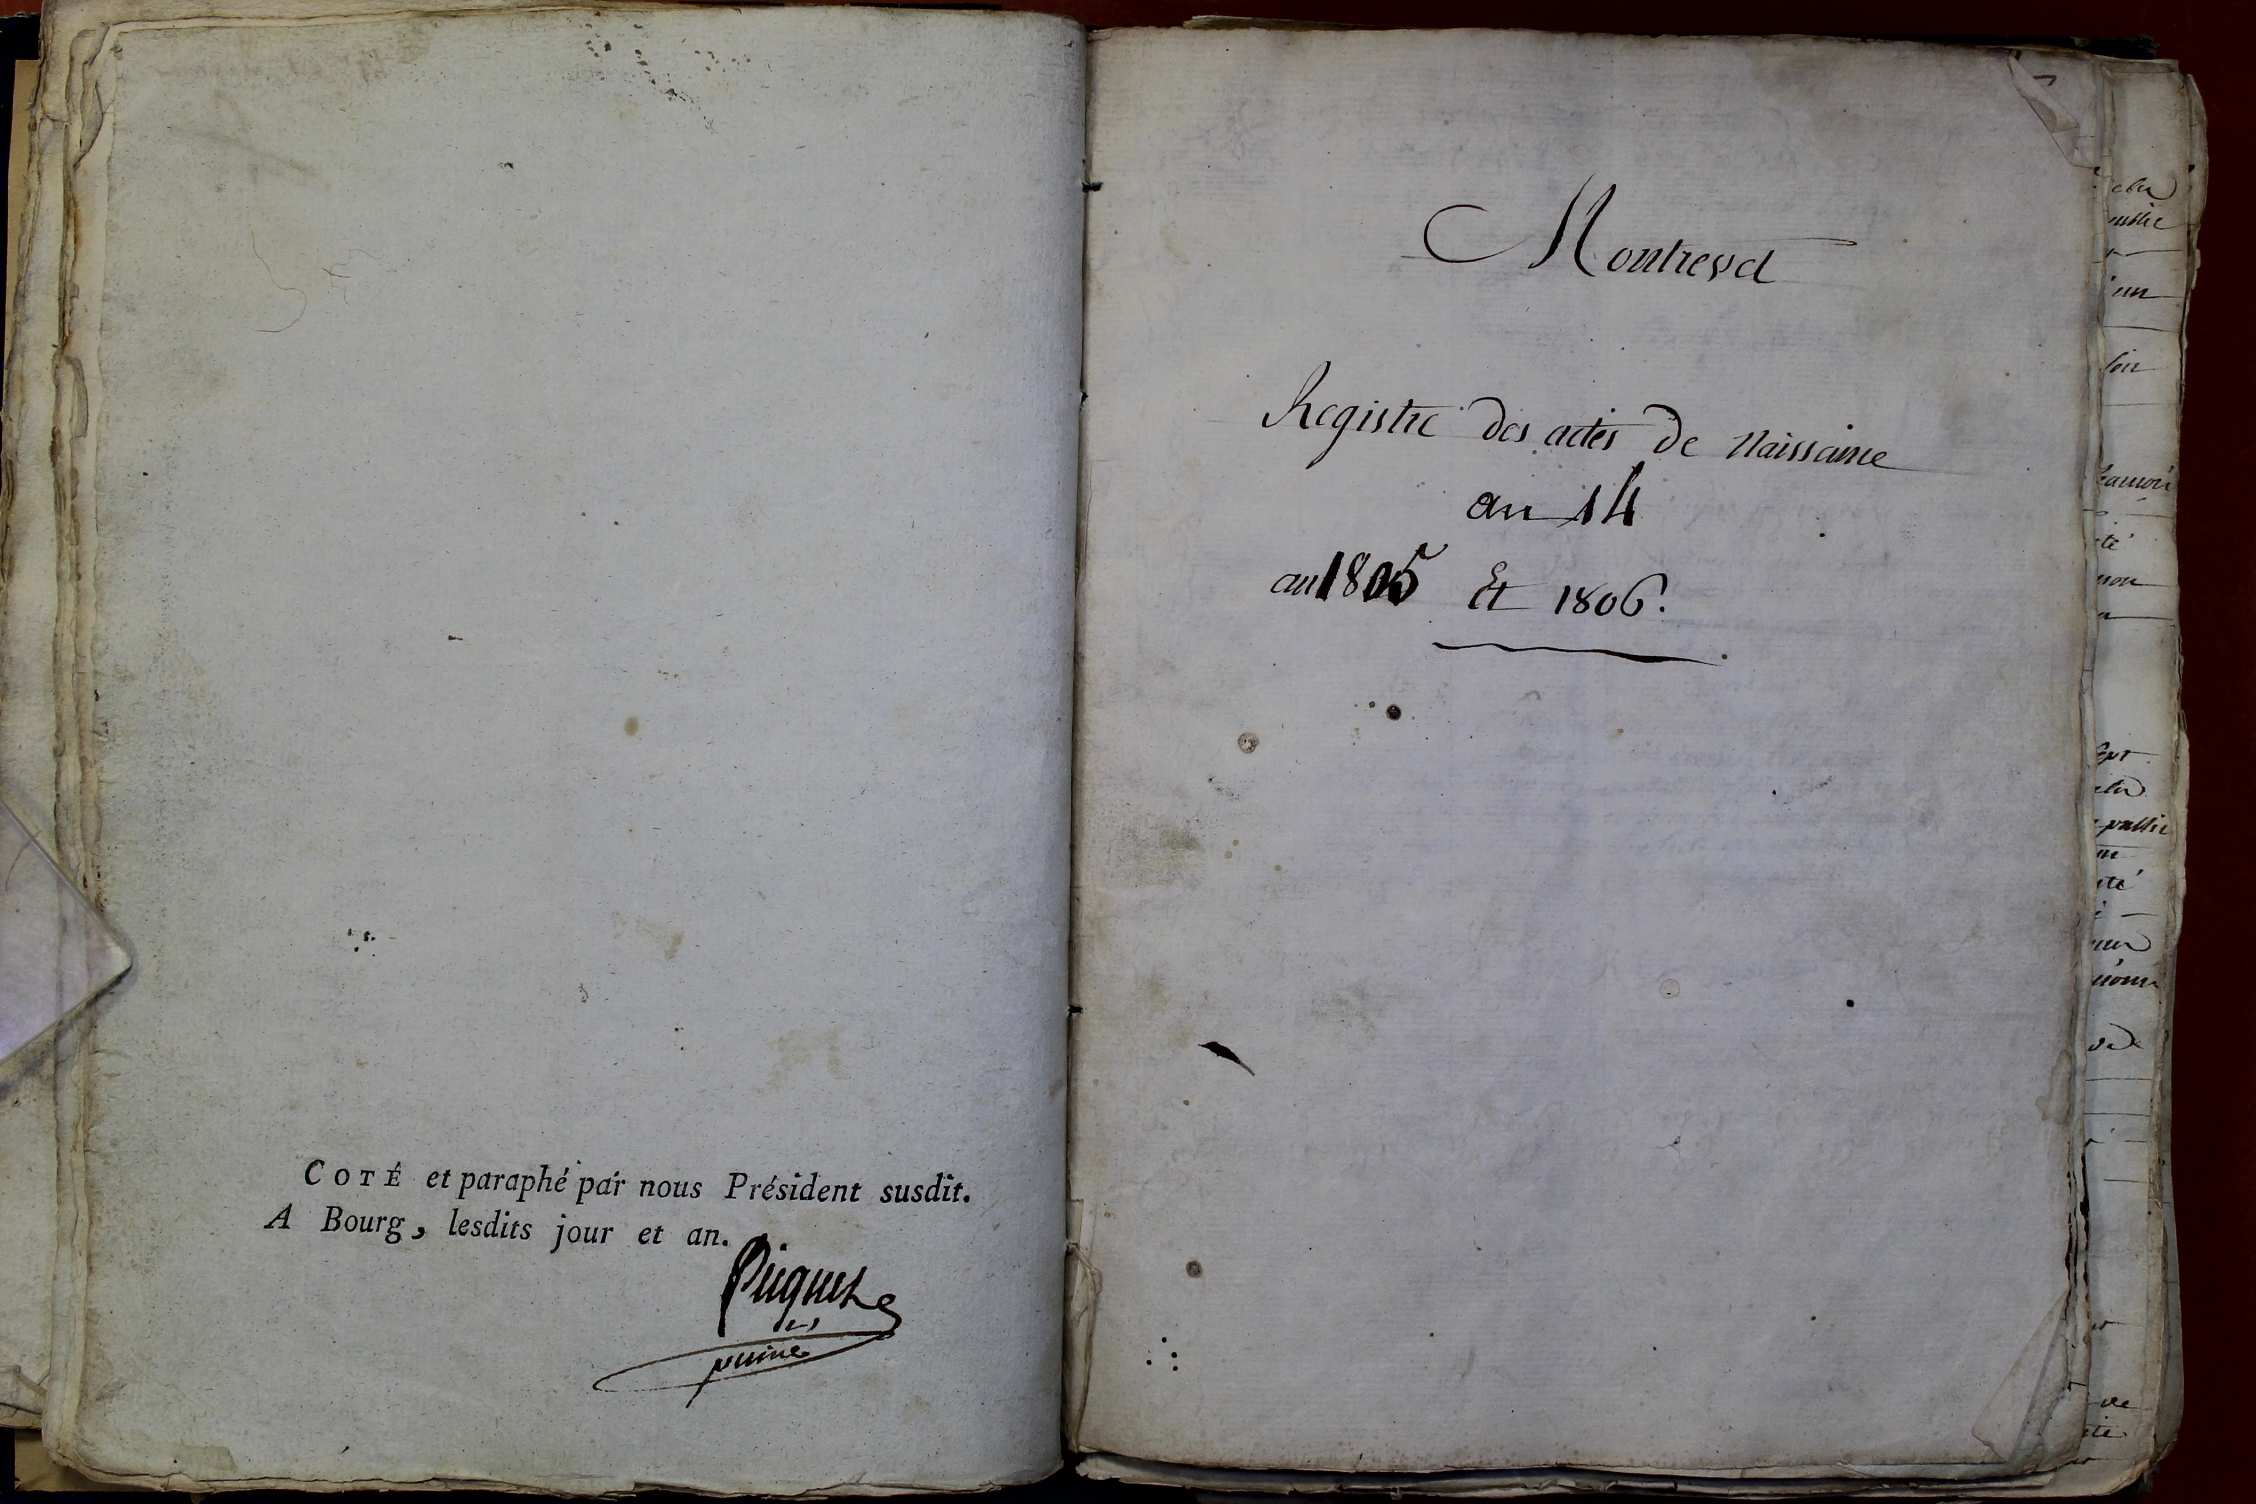 COTÉ et paraphé par nous Président susdit.
A Bourg, lesdits jour et an.
Piquet
Montrevel
Registre des actes de Naissance
an 14
an 1805 Et 1806.